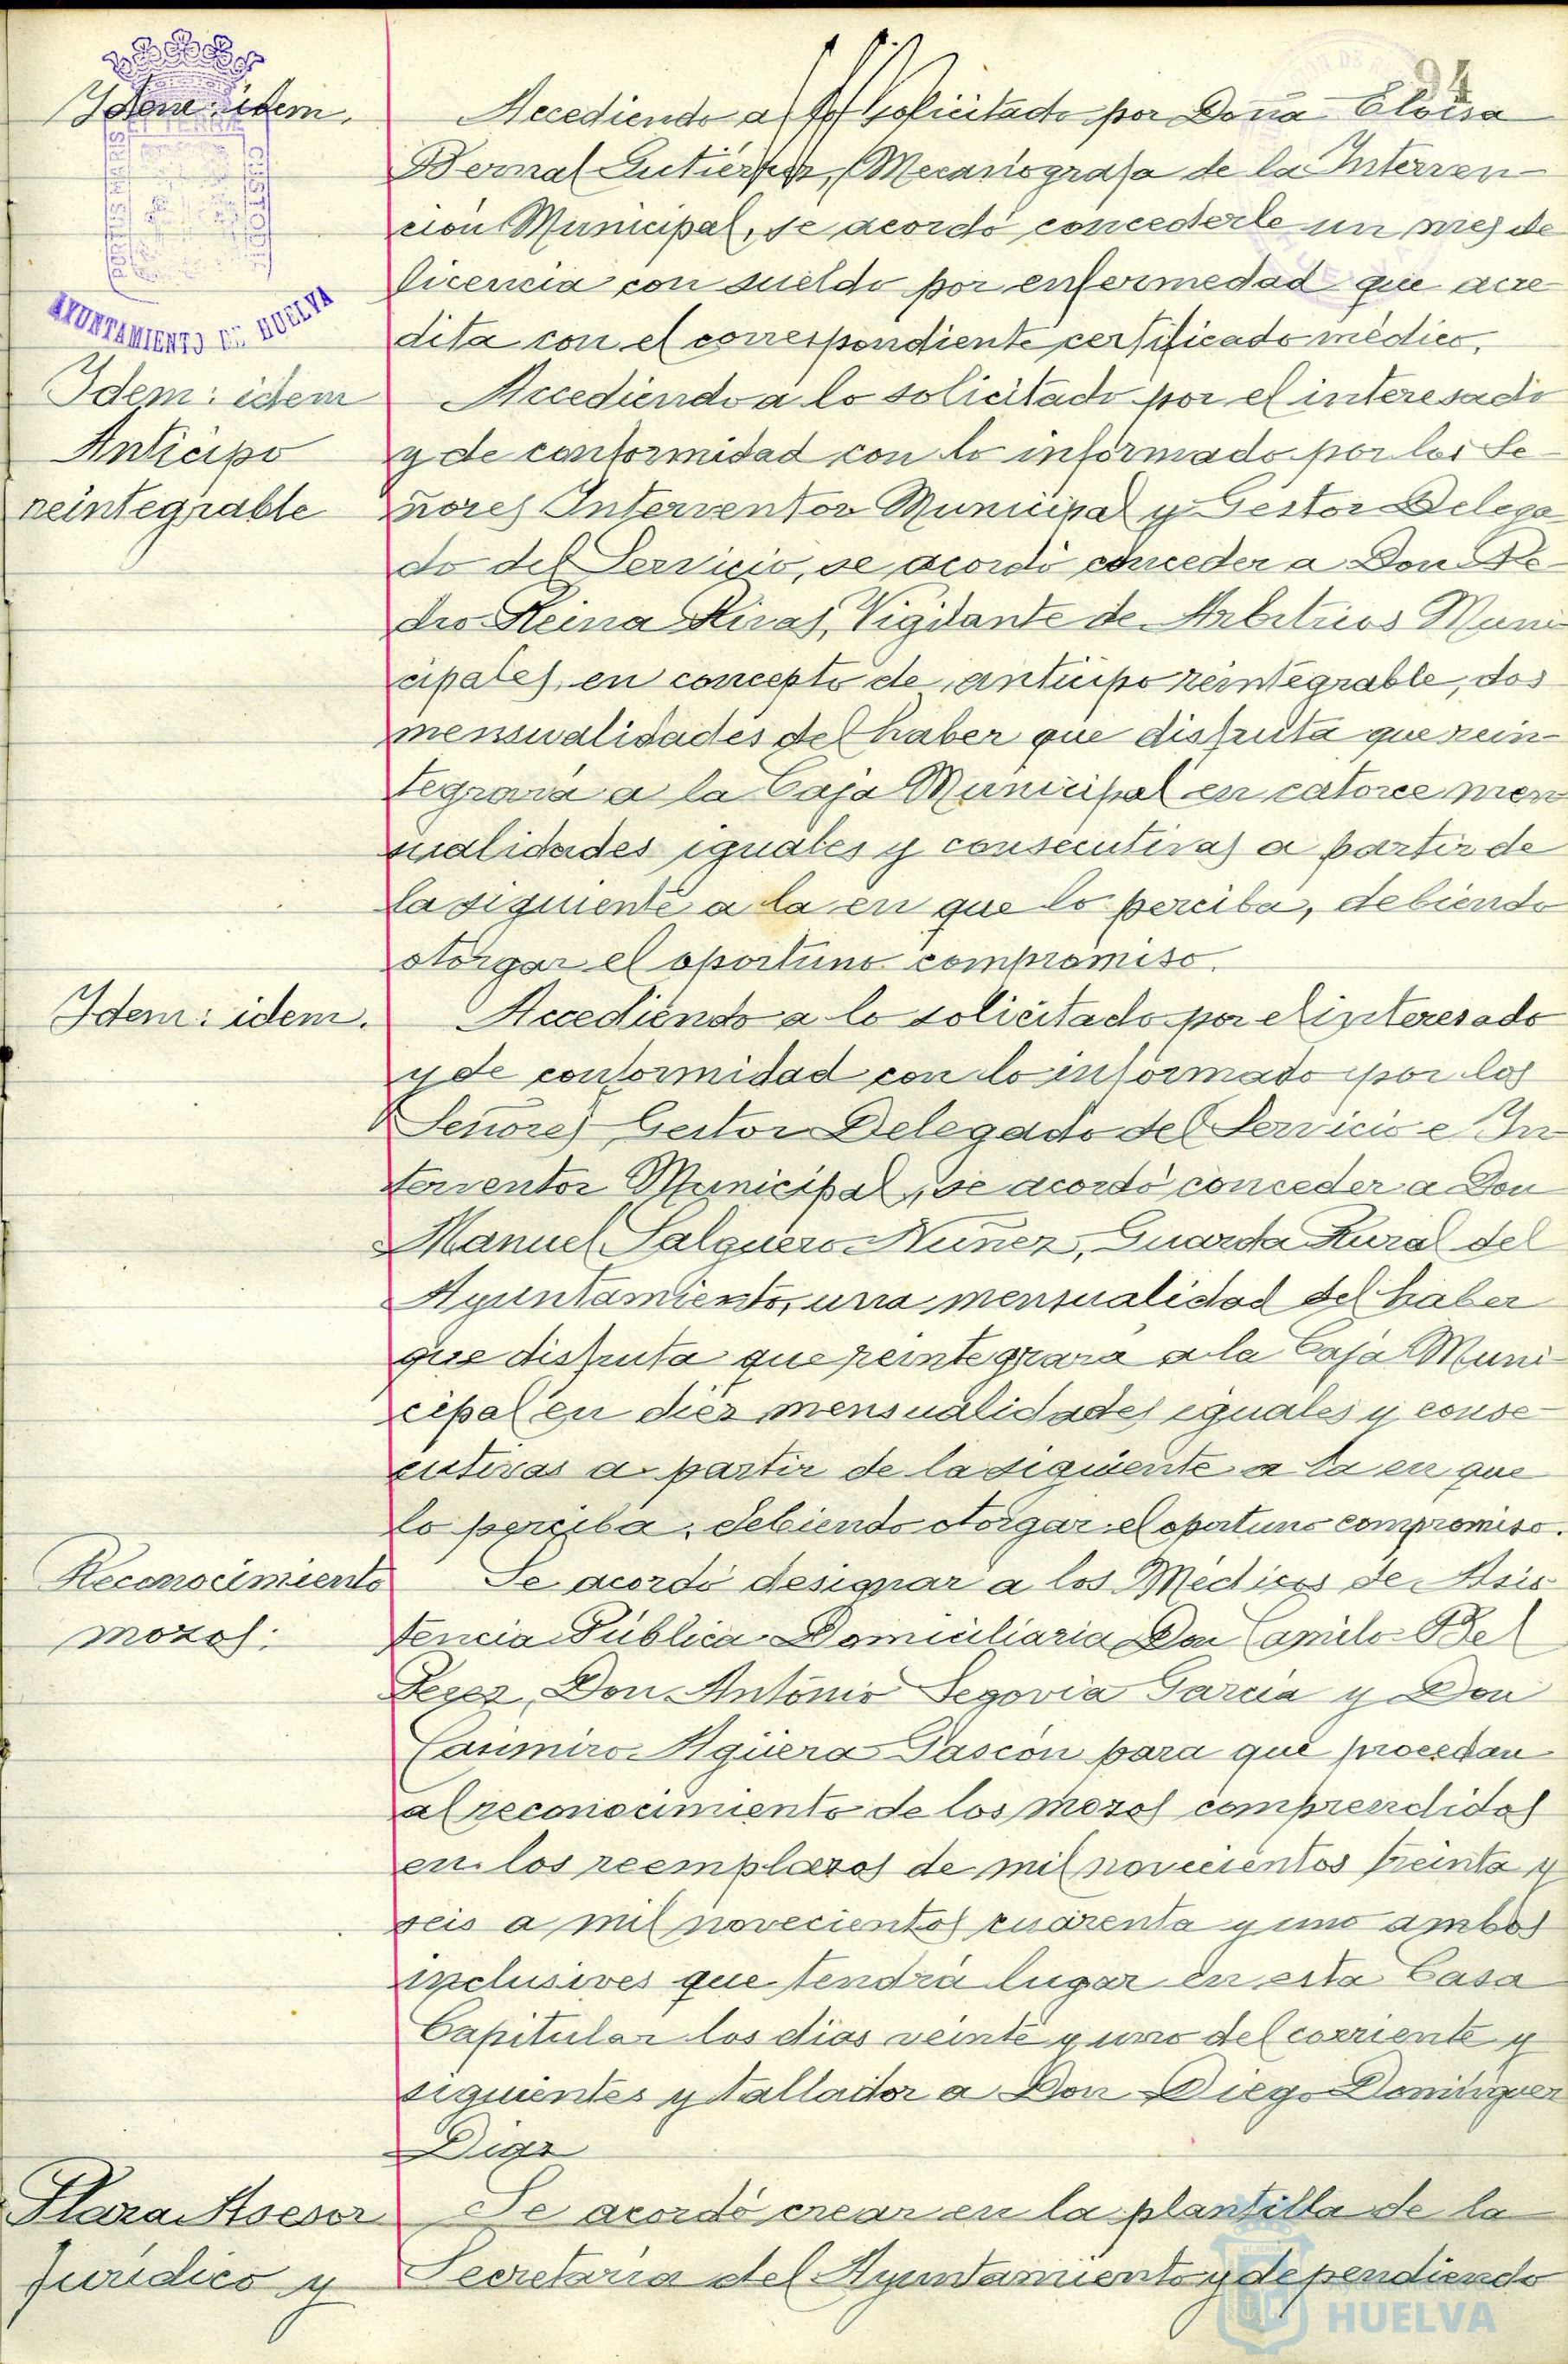 94
Idem: idem.
Accediendo a lo solicitado por Doña Eloisa
Bernal Gutierrez, Mecanografa de la Interven-
ción Municipal, se acordó concederle un mes de
licencia con sueldo por enfermedad que acre
dita con el correspondiente certificado médico.
AYUNTAMIENTO DE HUELVA
Idem: idem
Anticipo
reintegrable
Accediendo a lo solicitado por el interesado
y de conformidad con lo informado por los Se-
ñores Interventor Municipal y Gestor Delega
do del Servicio, se acordó conceder a Don Pe-
dro Reina Rivas, Vigilante de Arbitrios Muni
cipales, en concepto de anticipo reintegrable, dos
mensualidades del haber que disfruta que rein-
tegrará a la Caja Municipal en catorce men
sualidades iguales y consecutivas a partir de
la siguiente a la en que lo perciba, debiendo
otorgar el oportuno compromiso.
Idem: idem.
Accediendo a lo solicitado por el interesado
y de conformidad con lo informado por los
Señores Gestor Delegado del Servicio e In
terventor Municipal, se acordó conceder a Don
Manuel Salguero Nuñez, Guarda Rural del
Ayuntamiento, una mensualidad del haber
que disfruta que reintegrará a la Caja Muni
cipal en diez mensualidades iguales y conse-
cutivas a partir de la siguiente a la en que
lo perciba, debiendo otorgar el oportuno compromiso.
Reconocimiento
mozos:
Se acordó designar a los Médicos de Asis
tencia Pública Domiciliaria Don Camilo Bel
Perez, Don Antonio Segovia Garcia y Don
Casimiro Agüera Pascón para que procedan
al reconocimiento de los mozos comprendidos
en los reemplazos de mil novecientos treinta y
seis a mil novecientos cuarenta y uno ambos
inclusives que tendrá lugar en esta Casa
Capitular los dias veinte y uno del corriente y
siguientes y tallador a Don Diego Dominguez
Plaza Asesor
Jurídico y
Se acordó crear en la plantilla de la
Secretaria del Ayuntamiento y dependiendo
HUELVA